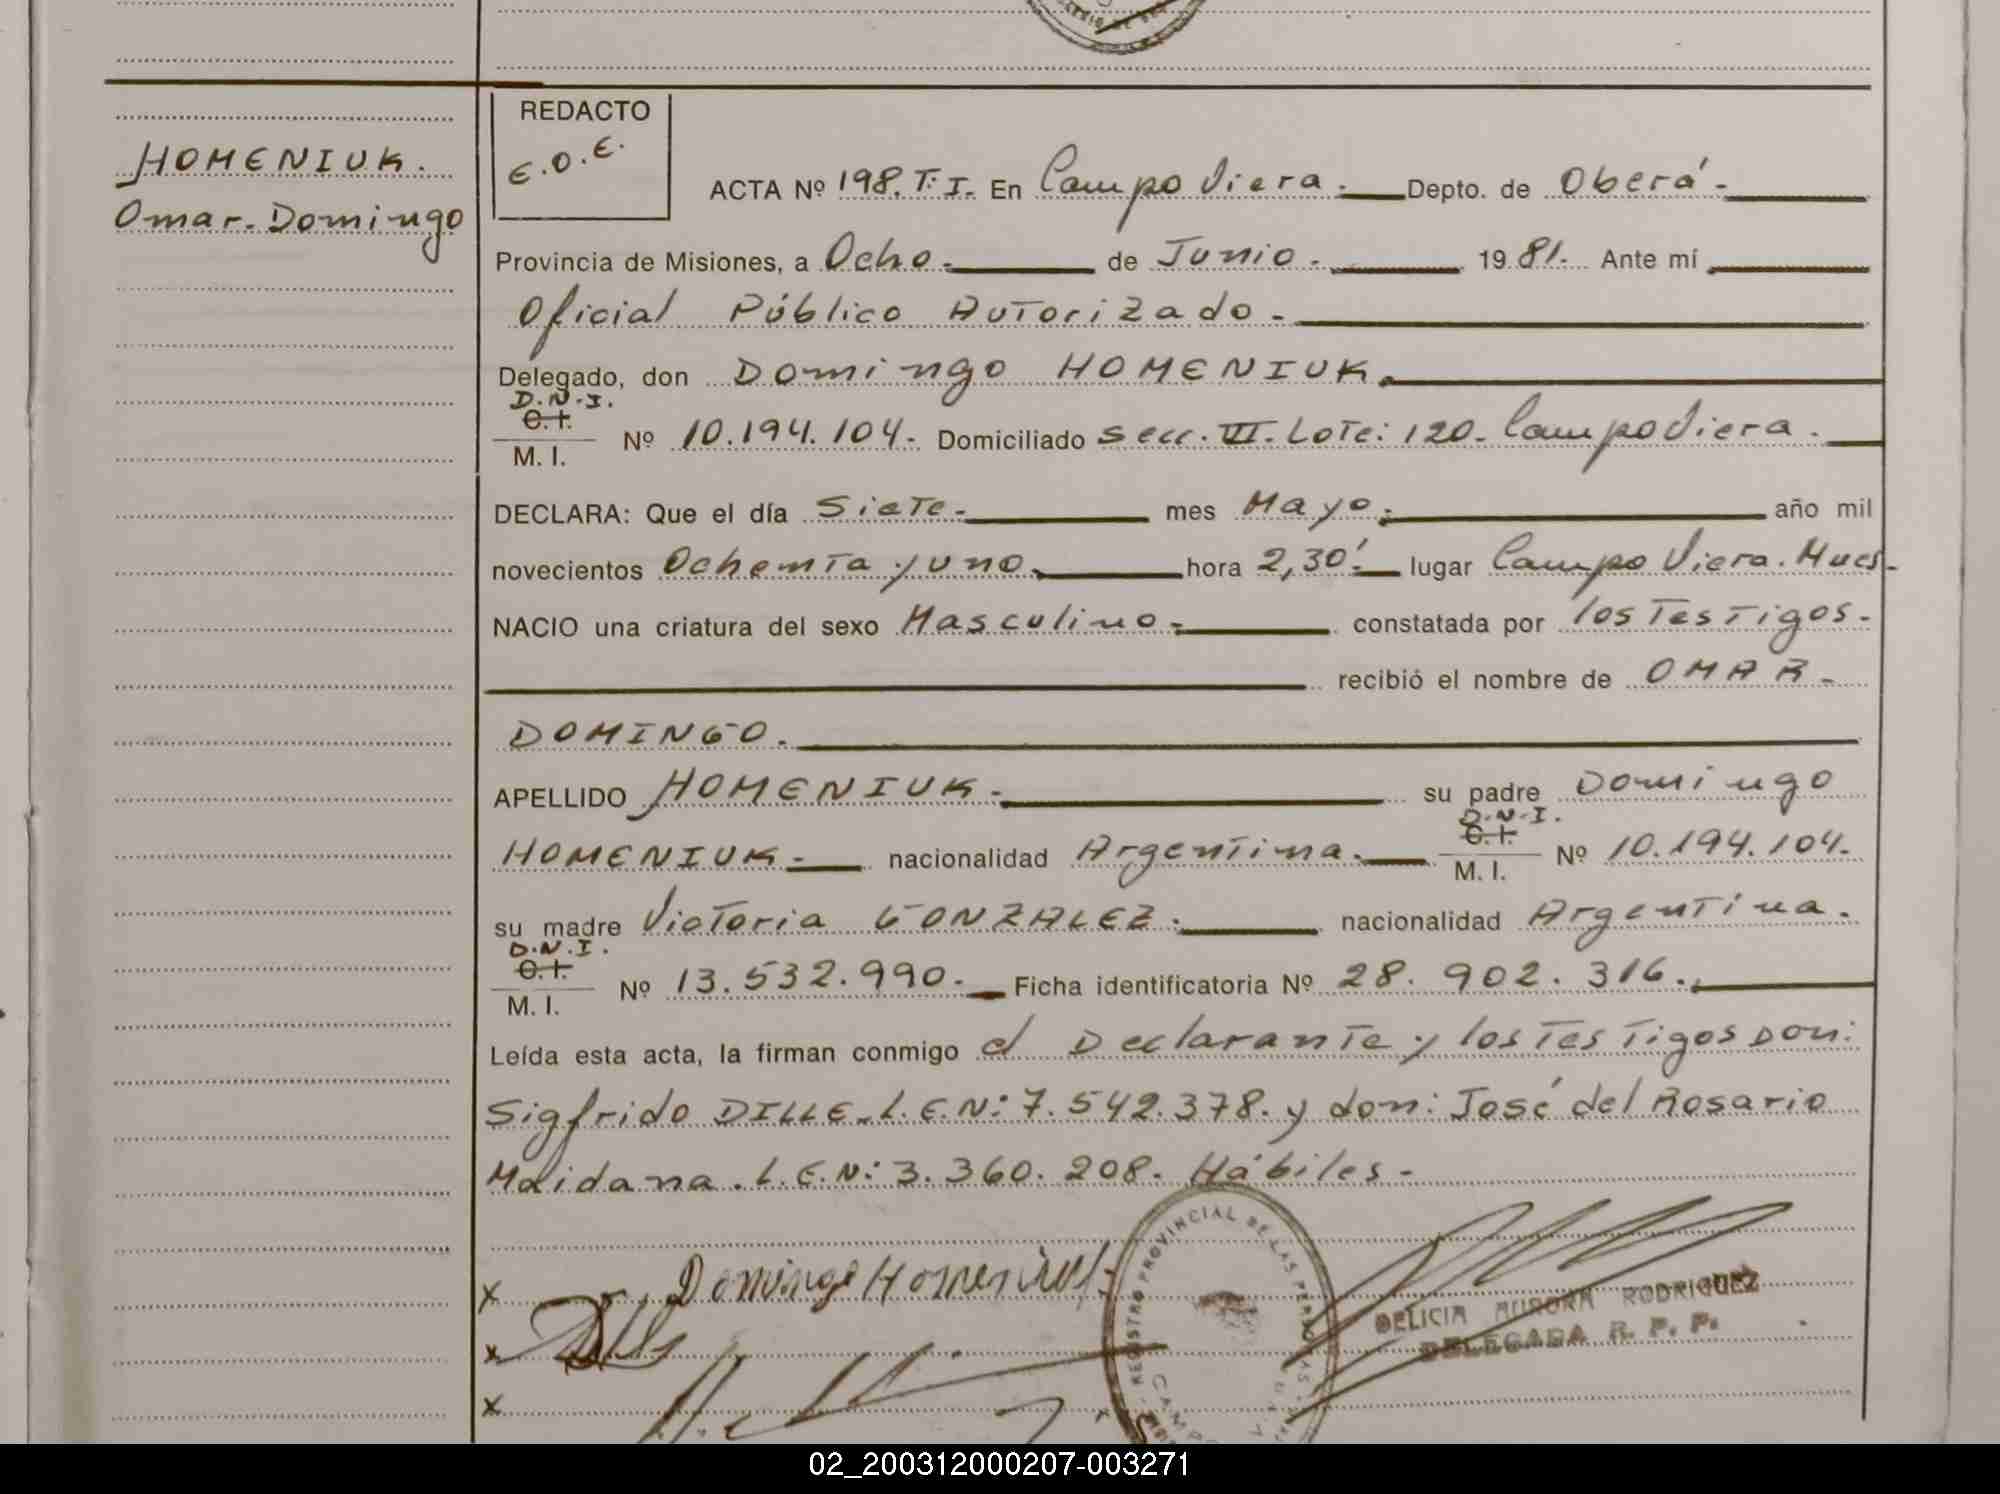 HOMENIUK.
Omar. Domingo
REDACTO
E.O.E.
ACTA Nº 198. T. I. En Campo Viera.- Depto. de Oberá-
Provincia de Misiones, a Ocho.- de Junio.- 1981.- Ante mí
Oficial Público Autorizado.-
Delegado, don Domingo HOMENIUK.
D.N.I.
C.I.
M. I.
Nº 10.194.104.- Domiciliado Secc. VI. Lote: 120.- Campo Viera.-
DECLARA: Que el día Siete.- mes Mayo.- año mil
novecientos Ochenta y uno.- hora 2,30'.- lugar Campo Viera. Mnes.-
NACIO una criatura del sexo Masculino.- constatada por los Testigos.-
recibió el nombre de OMAR.-
DOMINGO.-
APELLIDO HOMENIUK.- su padre Domingo
D.N.I.
C.I.
M. I.
HOMENIUK.- nacionalidad Argentina.- Nº 10.194.104.-
su madre Victoria GONZALEZ.- nacionalidad Argentina.-
D.N.I.
C.I.
M. I.
Nº 13.532.990.- Ficha identificatoria Nº 28. 902. 316.-
Leída esta acta, la firman conmigo el Declarante y los Testigos Don:
Sigfrido DILLE. L.E.N: 7.542.378. y don: José del Rosario
Maidana. L.E.N: 3.360.208. Hábiles.-
x Domingo Homeniuk
x
x
REGISTRO PROVINCIAL DE LAS PERSONAS
DELICIA AURORA RODRIGUEZ
DELEGADA R. P. P.
02_200312000207-003271